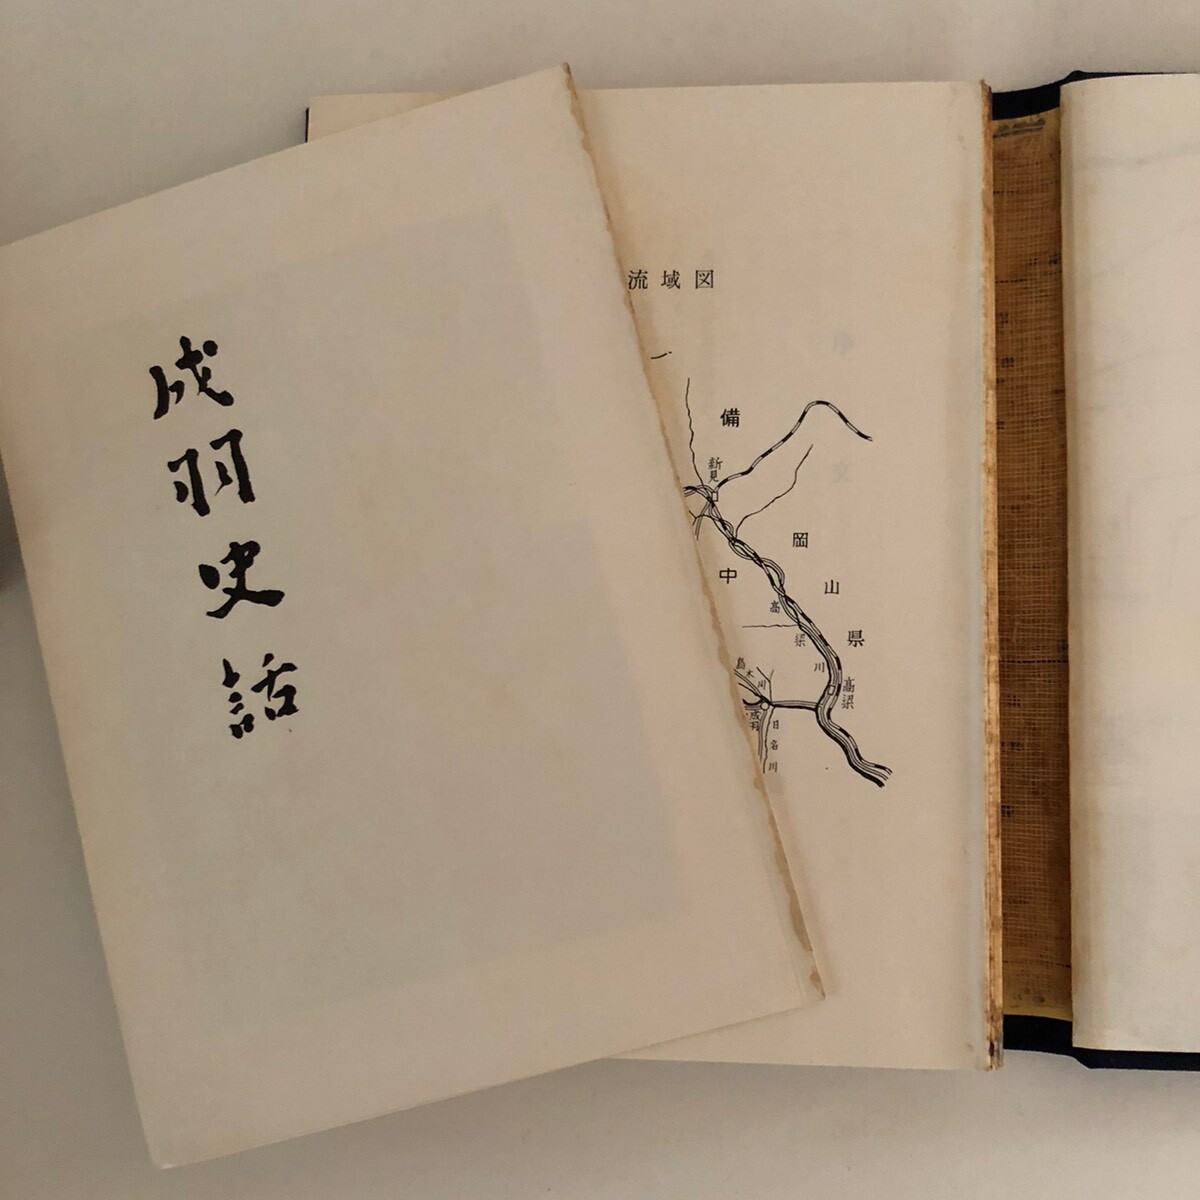 成羽史話
流域図
備
新見
中
岡山県
高梁川
高梁
島木川
成羽
日名川